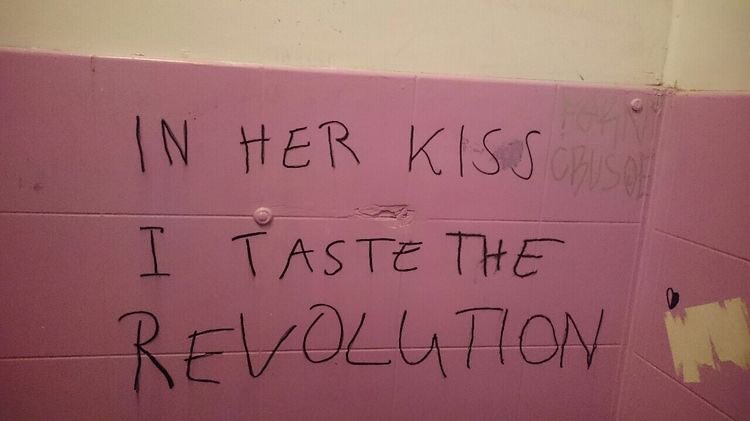 IN HER KISS
I TASTE THE
REVOLUTION